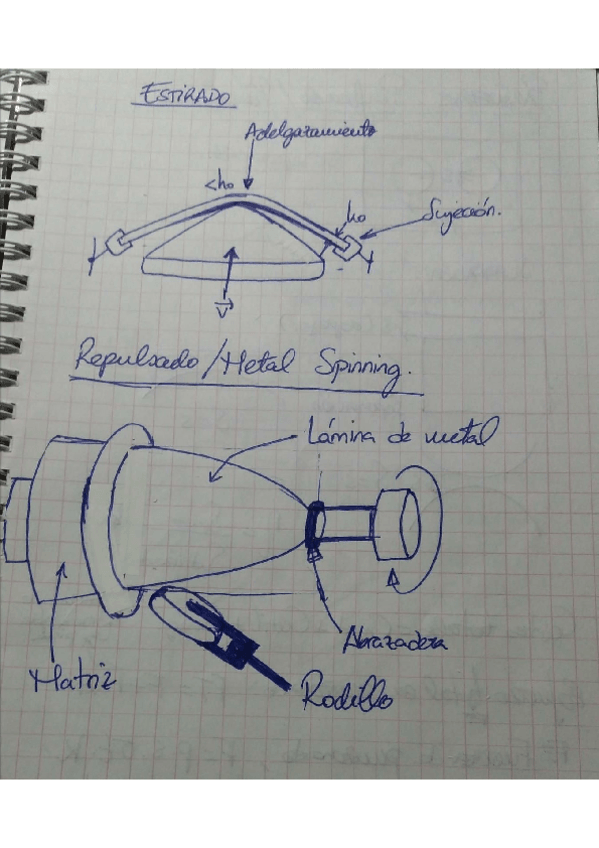 ESTIRADO
Adelgazamiento
<ho
ho
Sujeción.
V
Repulsado/Metal Spinning.
Lámina de metal
Abrazadera
Matriz
Rodillo